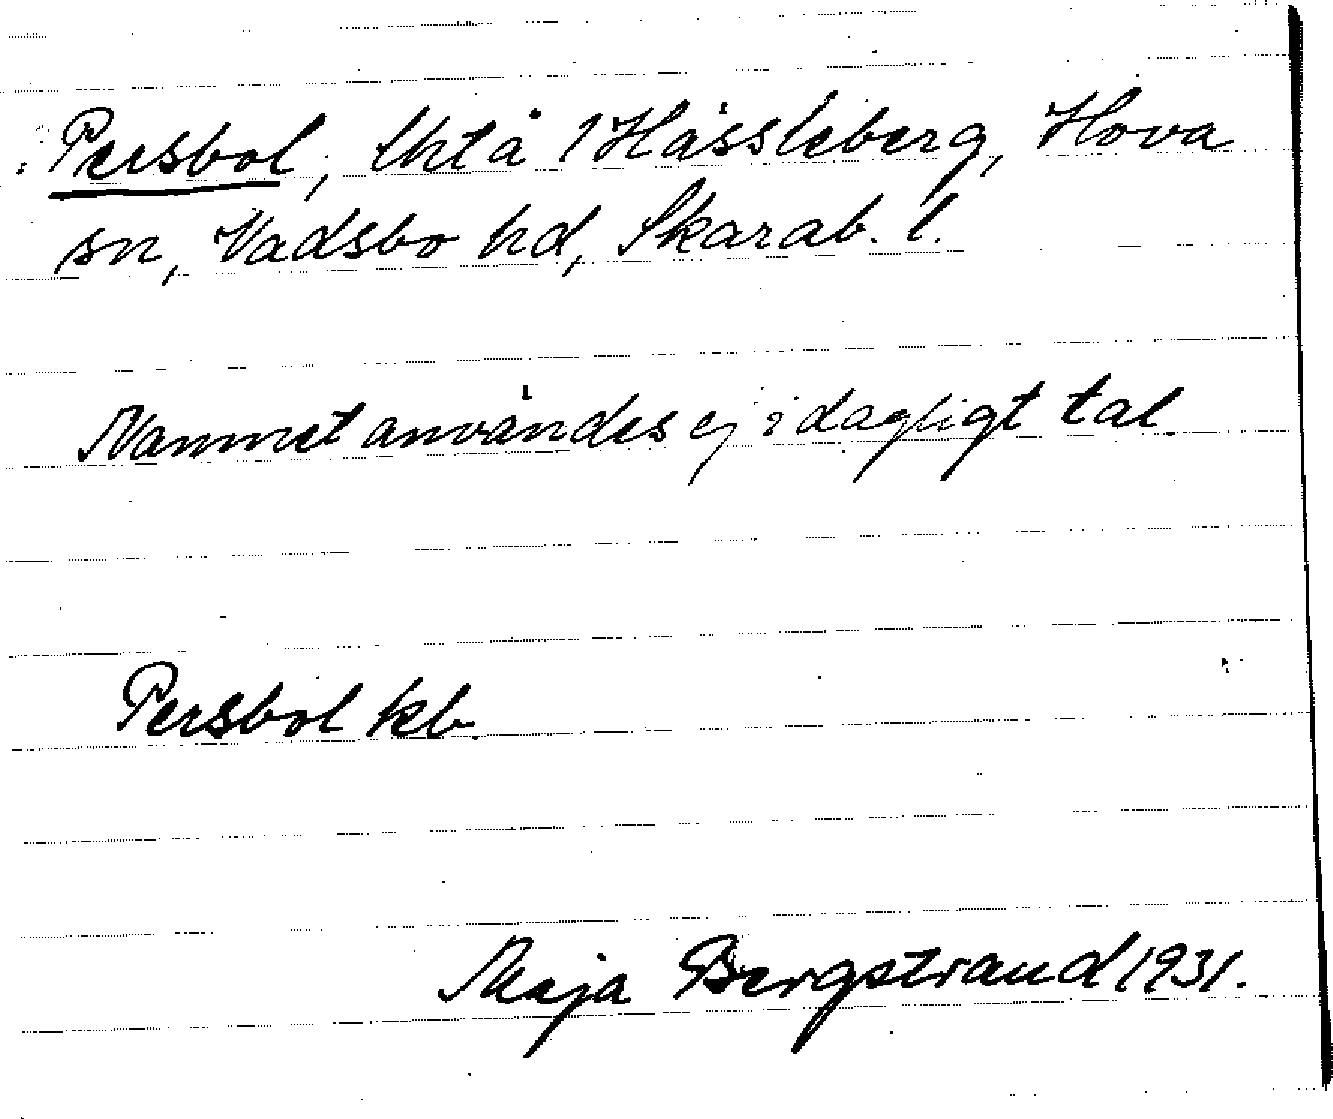 Persbol, tht å 1 Hässleberg, Hova
sn, Vadsbo hd, Skarab. l.
Namnet användes ej i dagligt tal.
Persbol kb.
Maja Bergstrand 1931.